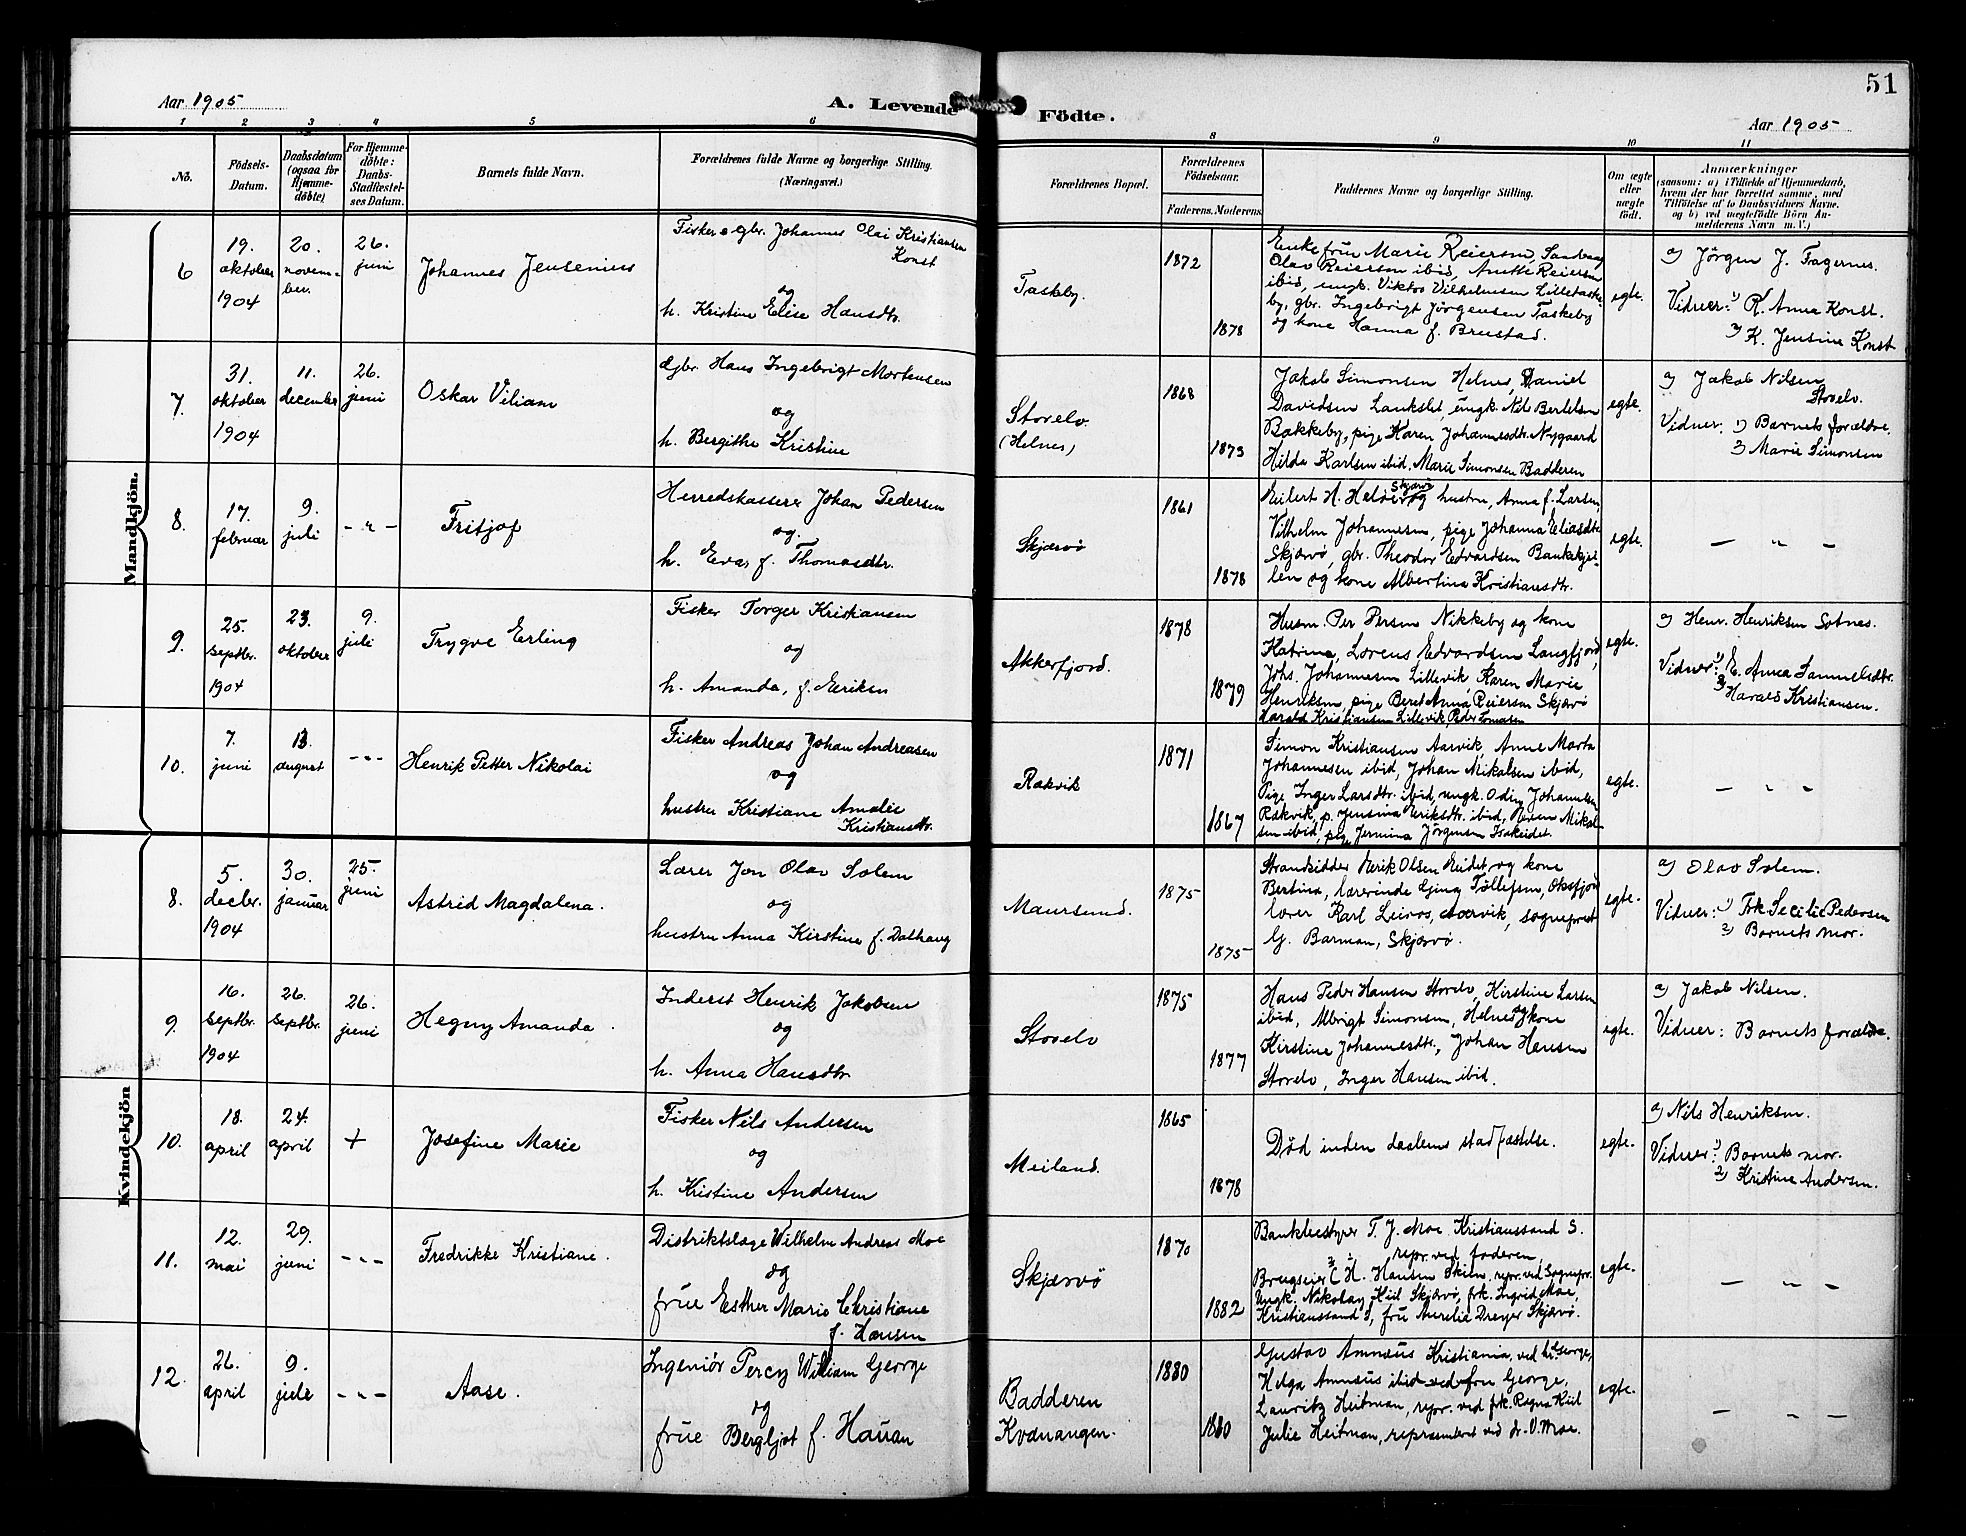 51
Aar 1905
A. Levende Födte.
Aar 1905
1 2 3 4 5 6 8 9 10 11
No.
Födsels-
Datum.
Daabsdatum
(ogsaa for
Hjemme-
döbte)
For Hjemme-
döbte:
Daabs-
Stadfæstel-
ses Datum.
Barnets fulde Navn.
Forældrenes fulde Navne og borgerlige Stilling.
(Næringsvei.)
Forældrenes Bopæl.
Forældrenes
Födselsaar.
Faderens. Moderens.
Faddernes Navne og borgerlige Stilling.
Om ægte
eller
uægte
födt.
Anmærkninger
(saasom: a) i Tilfælde af Hjemmedaab,
hvem der har forrettet samme, med
Tilföielse af to Daabsvidners Navne.
og b) ved uegtefödte Börn An-
melderens Navn m. V.)
Mandkjön.
6
19.
oktober
1904
20.
novem-
ber.
26.
juni
Johannes Jensenius
Fisker o gbr. Johannes Olai Kristiansen
Konst
og
h. Kristine Elise Hansdtr.
Taskeby.
1872
1878
Enkefrue Marie Reiersen,
Olav Reiersen ibid, Anette Reiersen
ibid, ungk. Viktor Vilhelmsen Lilletaske-
by, gbr. Ingebrigt Jørgensen Taskeby
og kone Hanna f. Brustad.
egte.
a) Jörgen J. Fagernes.
Vidner: 1) R. Anna Konst.
2) K. Jensine Konst
7.
31.
oktober
1904
11.
december
26.
juni
Oskar Viliam
Gbr. Hans Ingebrigt Mortensen
og
h. Bergithe Kristine
Storelv.
(Helnes)
1868
1873
Jakob Simonsen Helnes, Daniel
Davidsen Laukslet, ungk. Nils Bertelsen
Bakkeby, pige Karen Johannesdtr. Nygaard
Hilda Karlsen ibid. Marie Simonsen Badderen
egte.
a) Jakob Nilsen
Storelv.
Vidner: 1) Barnets forældre.
2) Marie Simonsen
8.
17.
februar
9.
juli
- " -
Fritjof
Herredskasserer Johan Pedersen
og
h. Eva f. Thomasdtr.
Skjærvö
1861
1878
Skjærvö
Eilert H. Heløe og hustru, Anna f. Larsen,
Vilhelm Johannessen, pige Johanna Eliasdtr.
Skjærvö, gbr. Theodor Edvardsen Bankekjei-
len og kone Albertina Kristiansdtr.
egte.
- " -
9.
25.
septbr.
1904
23.
oktober
9.
juli
Trygve Erling
Fisker Torger Kristiansen
og
h. Amanda, f. Eriksen
Akkerfjord.
1878
1879
Husm. Per Persen Nikkeby og kone
Katrina, Lorens Edvardsen Langfjord,
Johs. Johannesen Lillevik Karen Marie
Henriksen, pige Beret Anna Reiersen Skjærvö
Harald Kristiansen Lillevik Peder Tomasen
egte.
a) Henr. Henriksen Sotnes.
Vidner: 1) E. Anna Samuelsdtr.
2) Harald Kristiansen.
10.
7.
juni
13.
august
- " -
Henrik Petter Nikolai
Fisker Andreas Johan Andreasen
og
hustru Kristiane Amalie
Kristiansdtr.
Rakvik
1871
1867
Simon Kristiansen Aarvik, Anne Marta
Johannesen ibid, Johan Mikalsen ibid,
Pige Inger Larsdtr. ibid, ungk. Odin Johannesen
Rakvik, p. Jensina Eriksdtr. ibid, Mikal-
sen ibid, pige Jermina Jörgensen Isakeidet.
egte.
- " -
Kvindekjön
8.
5.
decbr.
1904
30.
januar
25.
juni
Astrid Magdalena.
Lærer Jon Olav Solem
og
hustru Anna Kirstine f. Dalhaug
Maursund.
1875
1875
Strandsidder Erik Olsen Eidet og kone
Bertina, lærerinde Gina Tollefsen, Oksfjord
lærer Karl Leiros, Aarvik, sogneprest
G. Barman, Skjærvö.
egte.
a) Olav Solem.
Vidner: 1) Frk Secilie Pedersen
2) Barnets mor.
9.
16.
septbr.
1904
26.
septbr.
26.
juni
Hegny Amanda.
Inderst Henrik Jakobsen
og
h. Anna Hansdtr.
Storelv
1875
1877
Hans Peder Hansen Storelv, Kirstine Larsen
ibid, Albrigt Simonsen, Helnes og kone
Kirstine Johannesdtr., Johan Hansen
Storelv, Inger Hansen ibid.
egte.
a) Jakob Nilsen.
Vidner: Barnets forældre.
10.
18.
april
24.
april
+
Josefine Marie
Fisker Nils Andersen
og
h. Kristine Andersen
Meiland.
1865
1878
Död inden daabens stadfæstelse.
egte.
a) Nils Henriksen.
Vidner: 1) Barnets mor.
2) Kristine Andersen.
11.
12.
mai
29.
juni
- " -
Fredrikke Kristiane.
Distriktslæge Wilhelm Andreas Moe
og
frue Esther Marie Christiane
f. Hansen
Skjærvö
1870
1882
Bankbestyrer T. J. Moe Kristianssand S.
repr. ved faderen,
Brugseier C H. Hansen Skien, repr. ved Sognepr.
Ungk. Nikolay Hiil Skjærvö, frk. Ingrid Moe,
Kristianssand S, fru Aurelie Dreyer Skjærvö.
egte.
- " -
12.
26.
april
9.
juli
- " -
Aase.
Ingeniör Percy William George
og
frue Bergljot f. Hauan
Badderen
Kvænangen.
1880
1880
Gustav Amnéus Kristiania, ved hr. George,
Helga Amnéus ibid ved fru George,
Lauritz Heitman, repr. ved frk. Ragna Kiil
Julie Heitman, repræsenteret ved dr. V. Moe.
egte.
- " -